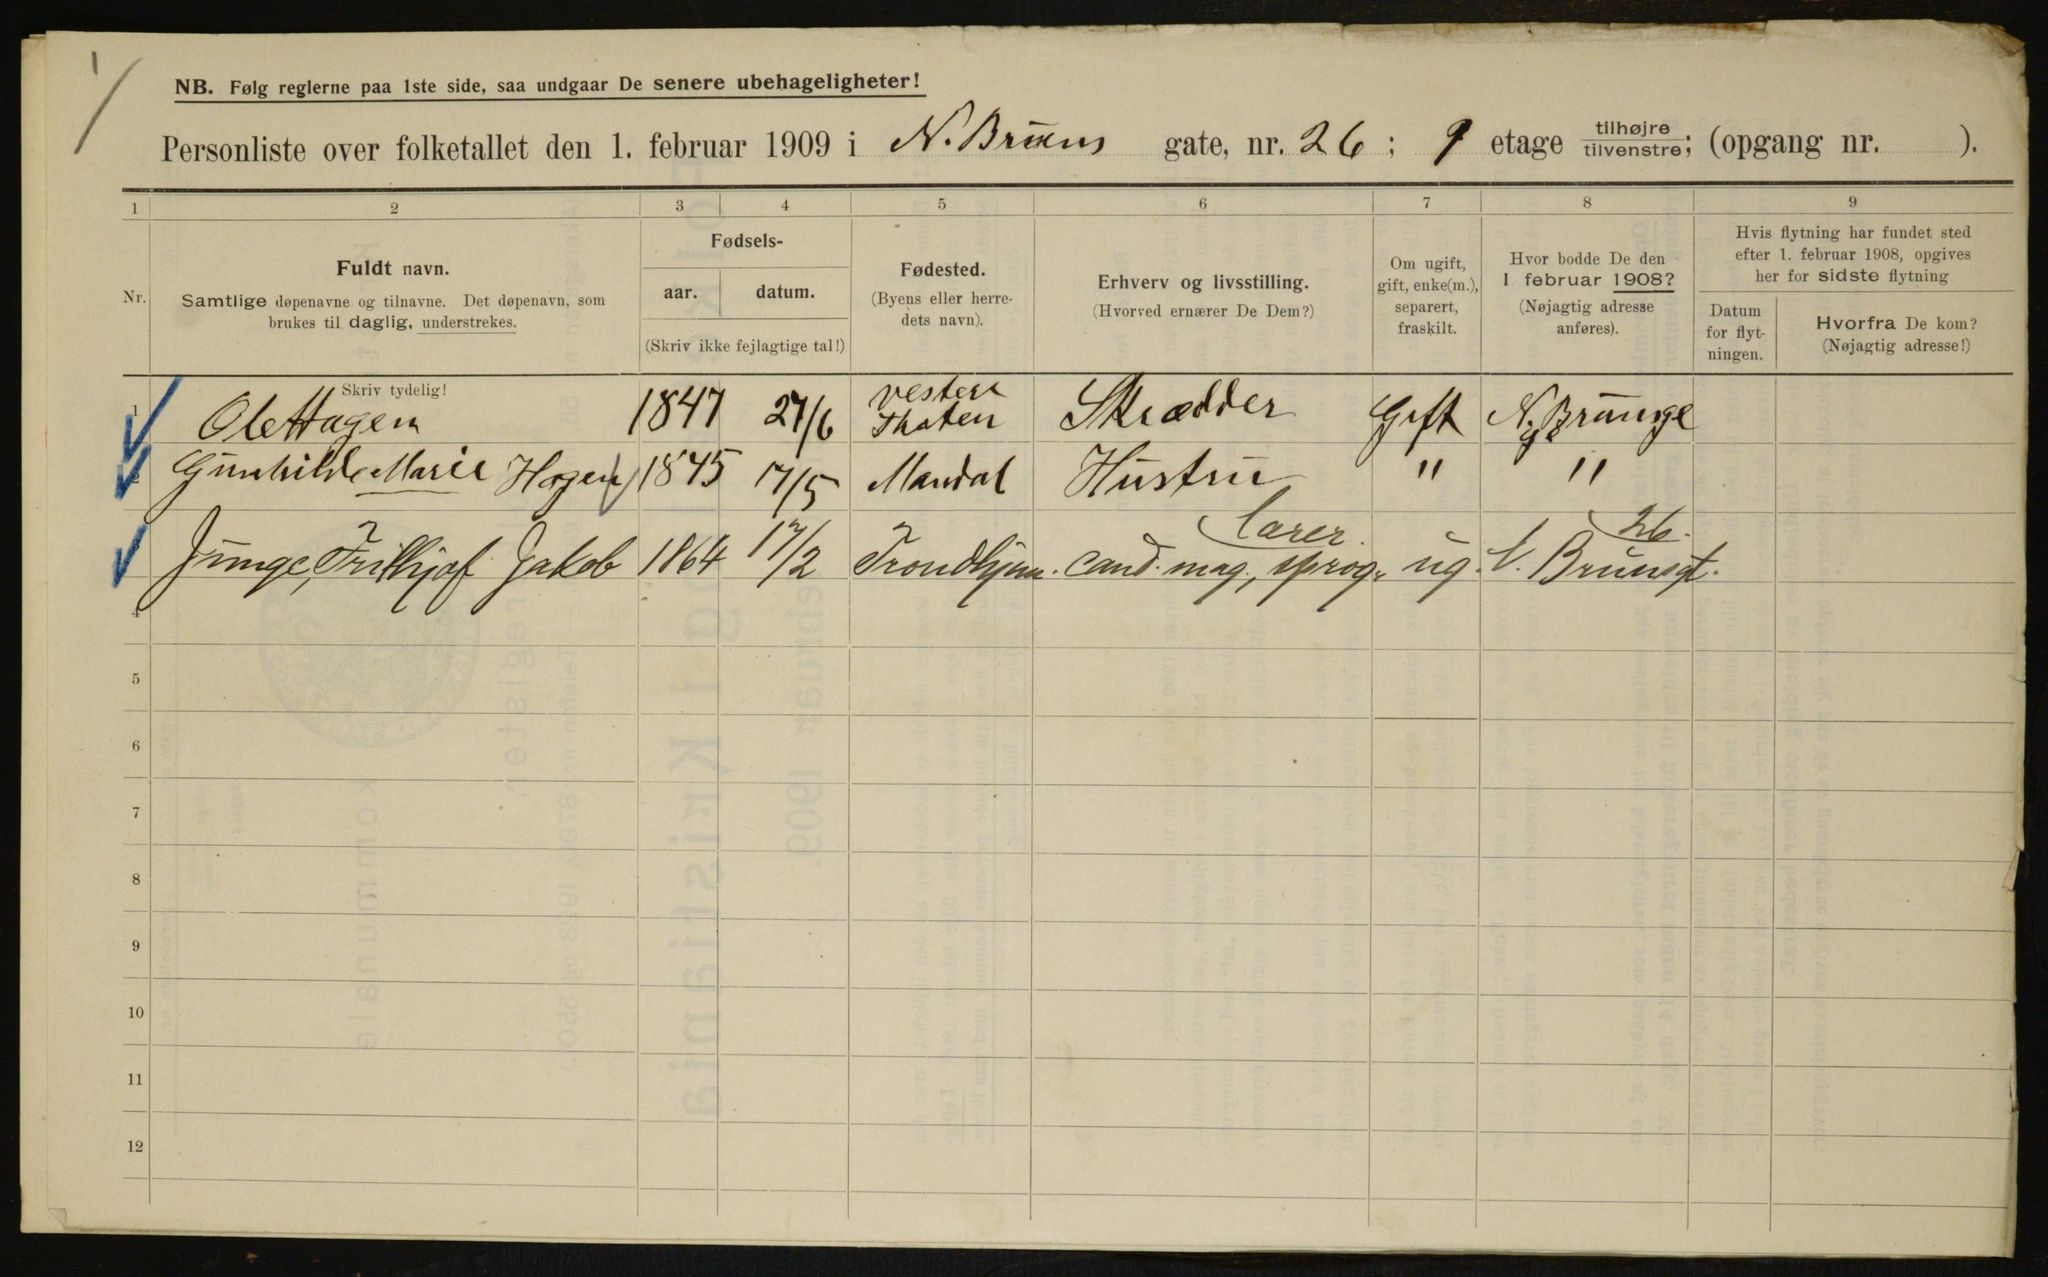 NB. Følg reglerne paa 1ste side, saa undgaar De senere ubehageligheter!
Personliste over folketallet den 1. februar 1909 i N. Bruuns gate, nr. 26; 1 etage tilhøjre tilvenstre; (opgang nr. ).
1 2 3 4 5 6 7 8 9
Nr.
Fuldt navn.
Samtlige døpenavne og tilnavne. Det døpenavn, som
brukes til daglig, understrekes.
Fødsels-
aar. datum.
(Skriv ikke fejlagtige tal!)
Fødested.
(Byens eller herre-
dets navn).
Erhverv og livsstilling.
(Hvorved ernærer De Dem?)
Om ugift,
gift, enke(m.),
separert,
fraskilt.
Hvor bodde De den
1 februar 1908?
(Nøjagtig adresse
anføres).
Hvis flytning har fundet sted
efter 1. februar 1908, opgives
her for sidste flytning
Datum
for flyt-
ningen.
Hvorfra De kom?
(Nøjagtig adresse!)
Skriv tydelig!
1 Ole Hagen 1847 27/6 vestere Thoten Skrædder Gift N. Brunsge
2 Gunhilde Marie Hagen 1845 17/5 Mandal Hustru " "
Junge, Frithjof Jakob 1864 17/2 Trondhjem. cand. mag., sproglærer. ug. N. Brunsgt. 26.
4
5
6
7
8
9
10
11
12